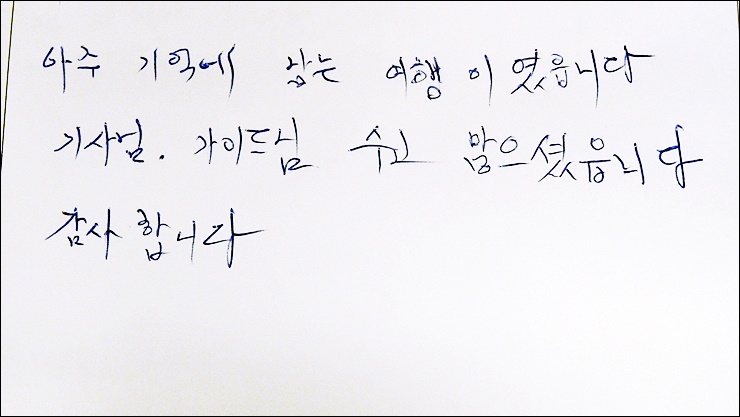 아주 기억에 남는 여행 이였읍니다
기사님. 가이드님 수고 많으셨읍니다
감사 합니다